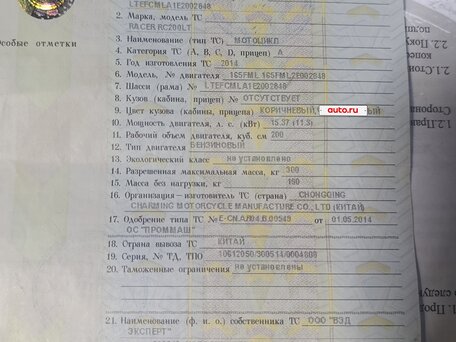 LTEFCMLA1E2002848
2. Марка, модель ТС
RACER RC200LT
3. Наименование (тип ТС) МОТОЦИКЛ
4. Категория ТС (А, В, С, D, прицеп) А
5. Год изготовления ТС 2014
6. Модель, № двигателя 165FML 165FML2E002848
7. Шасси (рама) № LTEFCMLA1E2002848
8. Кузов (кабина, прицеп) № ОТСУТСТВУЕТ
9. Цвет кузова (кабина, прицепа) КОРИЧНЕВЫЙ, auto.ru ЫЙ
10. Мощность двигателя, л. с. (кВт) 15.37 (11.3)
11. Рабочий объем двигателя, куб. см 200
12. Тип двигателя БЕНЗИНОВЫЙ
13. Экологический класс не установлено
14. Разрешенная максимальная масса, кг 300
15. Масса без нагрузки, кг 150
16. Организация – изготовитель ТС (страна) CHONGQING
CHARMING MOTORCYCLE MANUFACTURE CO., LTD (КИТАЙ)
17. Одобрение типа ТС № E-CN.АЯ04.В.00549 от 01.05.2014
ОС "ПРОММАШ"
18. Страна вывоза ТС КИТАЙ
19. Серия, № ТД, ТПО 10612050/300514/0004808
20. Таможенные ограничения не установлены
21. Наименование (ф. и. о.) собственника ТС ООО "ВЭД
ЭКСПЕРТ"
Особые отметки